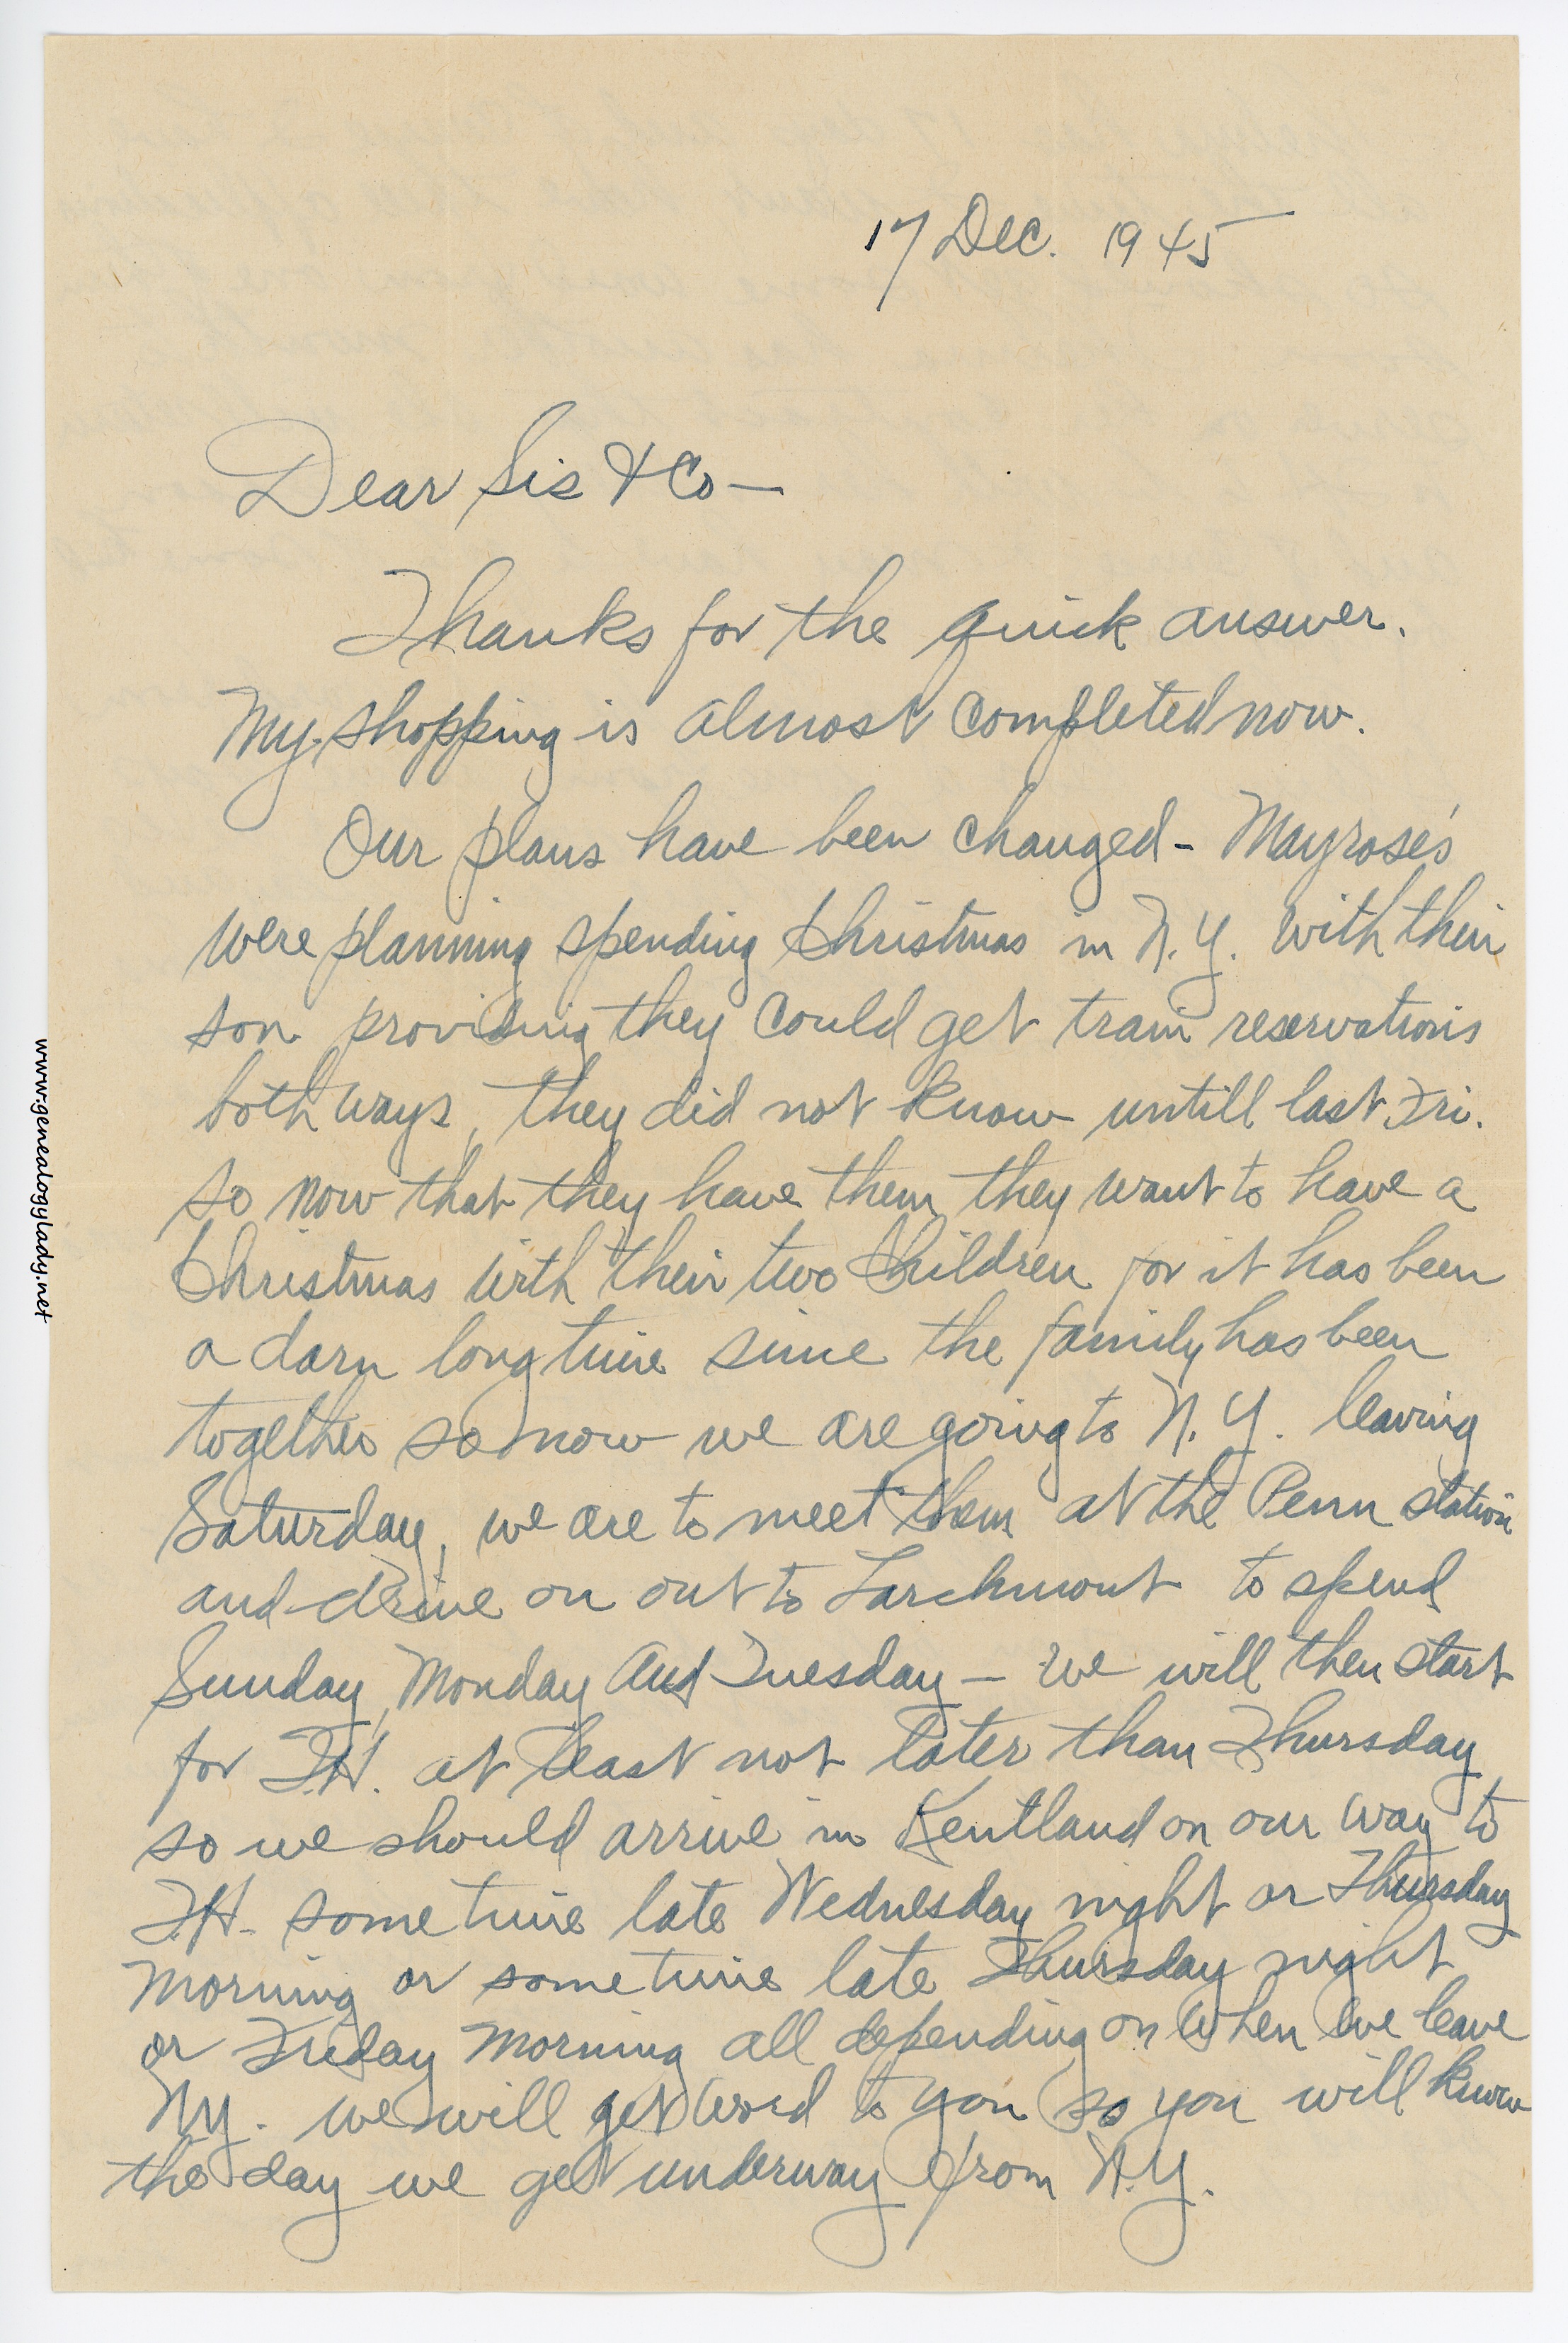 17 Dec. 1945
Dear Sis & Co —
Thanks for the quick answer.
My shopping is almost completed now.
Our plans have been changed - Mayrose's
were planning spending Christmas in N.Y. with their
son providing they could get train reservations
both ways, they did not know untill last Fri.
so now that they have them they want to have a
Christmas with their two children for it has been
a darn long time since the family has been
together so now we are going to N.Y. leaving
Saturday, we are to meet them at the Penn station
and drive on out to Larchmont to spend
Sunday, Monday and Tuesday — we will then start
for T.H. at least not later than Thursday
so we should arrive in Kentland on our way to
T.H. sometime late Wednesday night or Thursday
morning or sometime late Thursday night
or Friday morning all depending on when we leave
NY. we will get word to you so you will know
the day we get underway from N.Y.
www.genealogylady.net